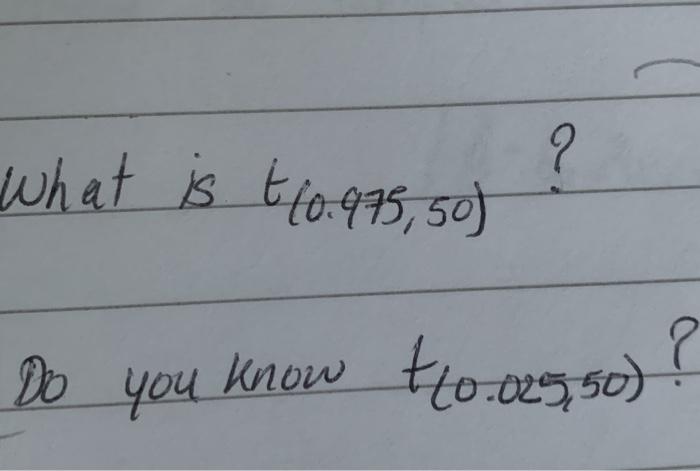 What is t(0.975, 50) ?
Do you know t(0.025, 50) ?